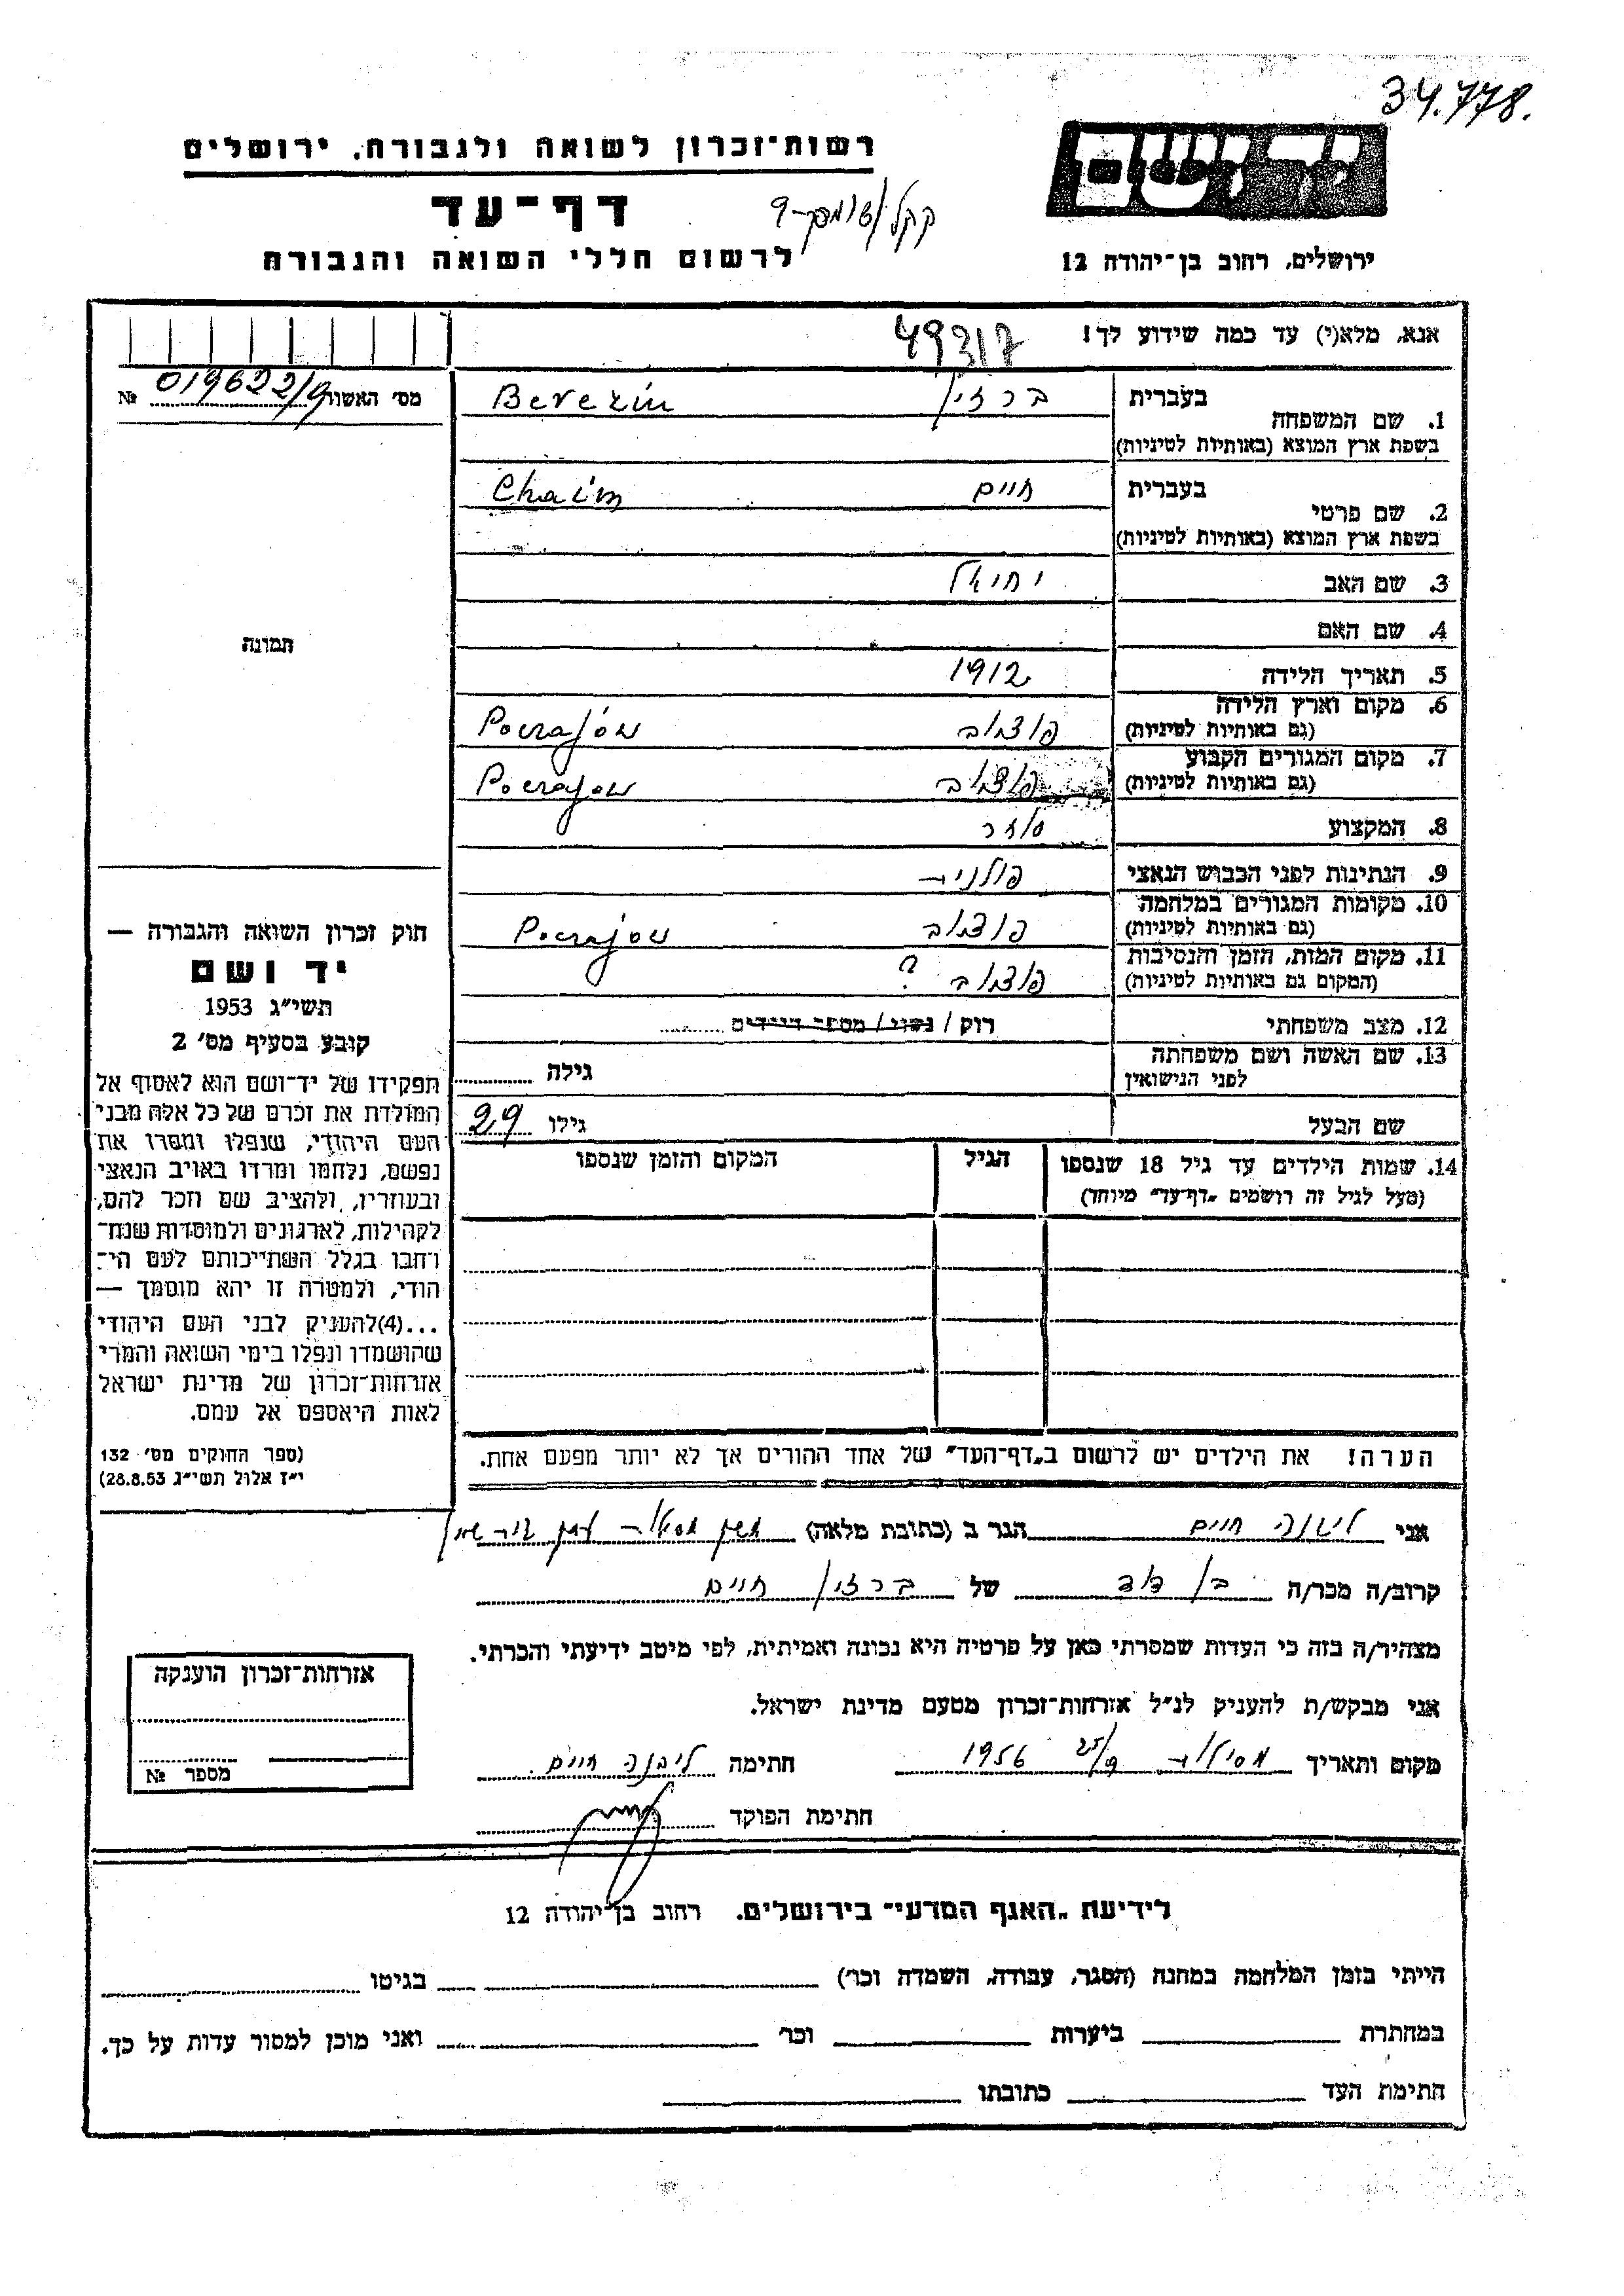 34.778.
יד ושם
רשות־זכרון לשואה ולגבורה, ירושלים
דף־עד
לרשום חללי השואה והגבורה
ירושלים, רחוב בן־יהודה 12
אנא, מלא(י) עד כמה שידוע לך!
49317
מס׳ האשור 019622/9 №
בעברית ברזין Berezin
1. שם המשפחה
בשפת ארץ המוצא (באותיות לטיניות)
בעברית חיים Chaim
2. שם פרטי
בשפת ארץ המוצא (באותיות לטיניות)
3. שם האב יחיאל
4. שם האם
5. תאריך הלידה 1912
6. מקום וארץ הלידה
(גם באותיות לטיניות)
7. מקום המגורים הקבוע
(גם באותיות לטיניות)
8. המקצוע סוחר
9. הנתינות לפני הכבוש הנאצי פולנית
10. מקומות המגורים במלחמה
(גם באותיות לטיניות)
11. מקום המות, הזמן והנסיבות ?
(המקום גם באותיות לטיניות)
12. מצב משפחתי רוק / נשוי / מספר הילדים
13. שם האשה ושם משפחתה
לפני הנישואין גילה
שם הבעל גילו 29
14. שמות הילדים עד גיל 18 שנספו הגיל המקום והזמן שנספו
(מעל לגיל זה רושמים „דף־עד” מיוחד)
הערה! את הילדים יש לרשום ב„דף־העד” של אחד ההורים אך לא יותר מפעם אחת.
תמונה
חוק זכרון השואה והגבורה —
יד ושם
תשי״ג 1953
קובע בסעיף מס׳ 2
תפקידו של יד־ושם הוא לאסוף אל
המולדת את זכרם של כל אלה מבני
העם היהודי, שנפלו ומסרו את
נפשם, נלחמו ומרדו באויב הנאצי
ובעוזריו, ולהציב שם וזכר להם,
לקהילות, לארגונים ולמוסדות שנח־
רחבו בגלל השתייכותם לעם הי־
הודי, ולמטרה זו יהא מוסמך —
...(4)להעניק לבני העם היהודי
שהושמדו ונפלו בימי השואה והמרי
אזרחות־זכרון של מדינת ישראל
לאות היאספם אל עמם.
(ספר החוקים מס׳ 132
י״ז אלול תשי״ג 28.8.53)
אני ליבנה חיים הגר ב (כתובת מלאה)
קרוב/ה מכר/ה בן דוד של ברזין חיים
מצהיר/ה בזה כי העדות שמסרתי כאן על פרטיה היא נכונה ואמיתית, לפי מיטב ידיעתי והכרתי.
אני מבקש/ת להעניק לנ״ל אזרחות־זכרון מטעם מדינת ישראל.
מקום ותאריך מסילות 25/9 1956 חתימה ליבנה חיים
חתימת הפוקד
אזרחות־זכרון הוענקה
מספר №
לידיעת „האגף המדעי” בירושלים. רחוב בן־יהודה 12
הייתי בזמן המלחמה במחנה (הסגר, עבודה, השמדה וכו׳) בגיטו
במחתרת ביערות וכו׳ ואני מוכן למסור עדות על כך.
חתימת העד כתובתו